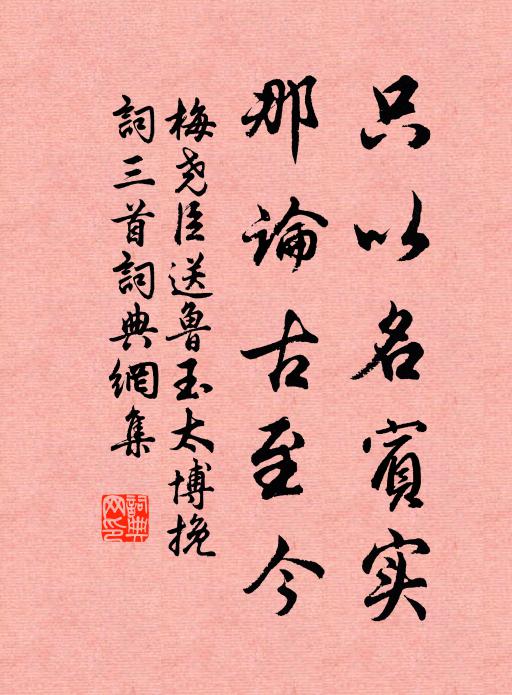 只以名宾实
那論古至今
梅尧臣送鲁玉太博挽
詞三首詞典網集
詞典网印